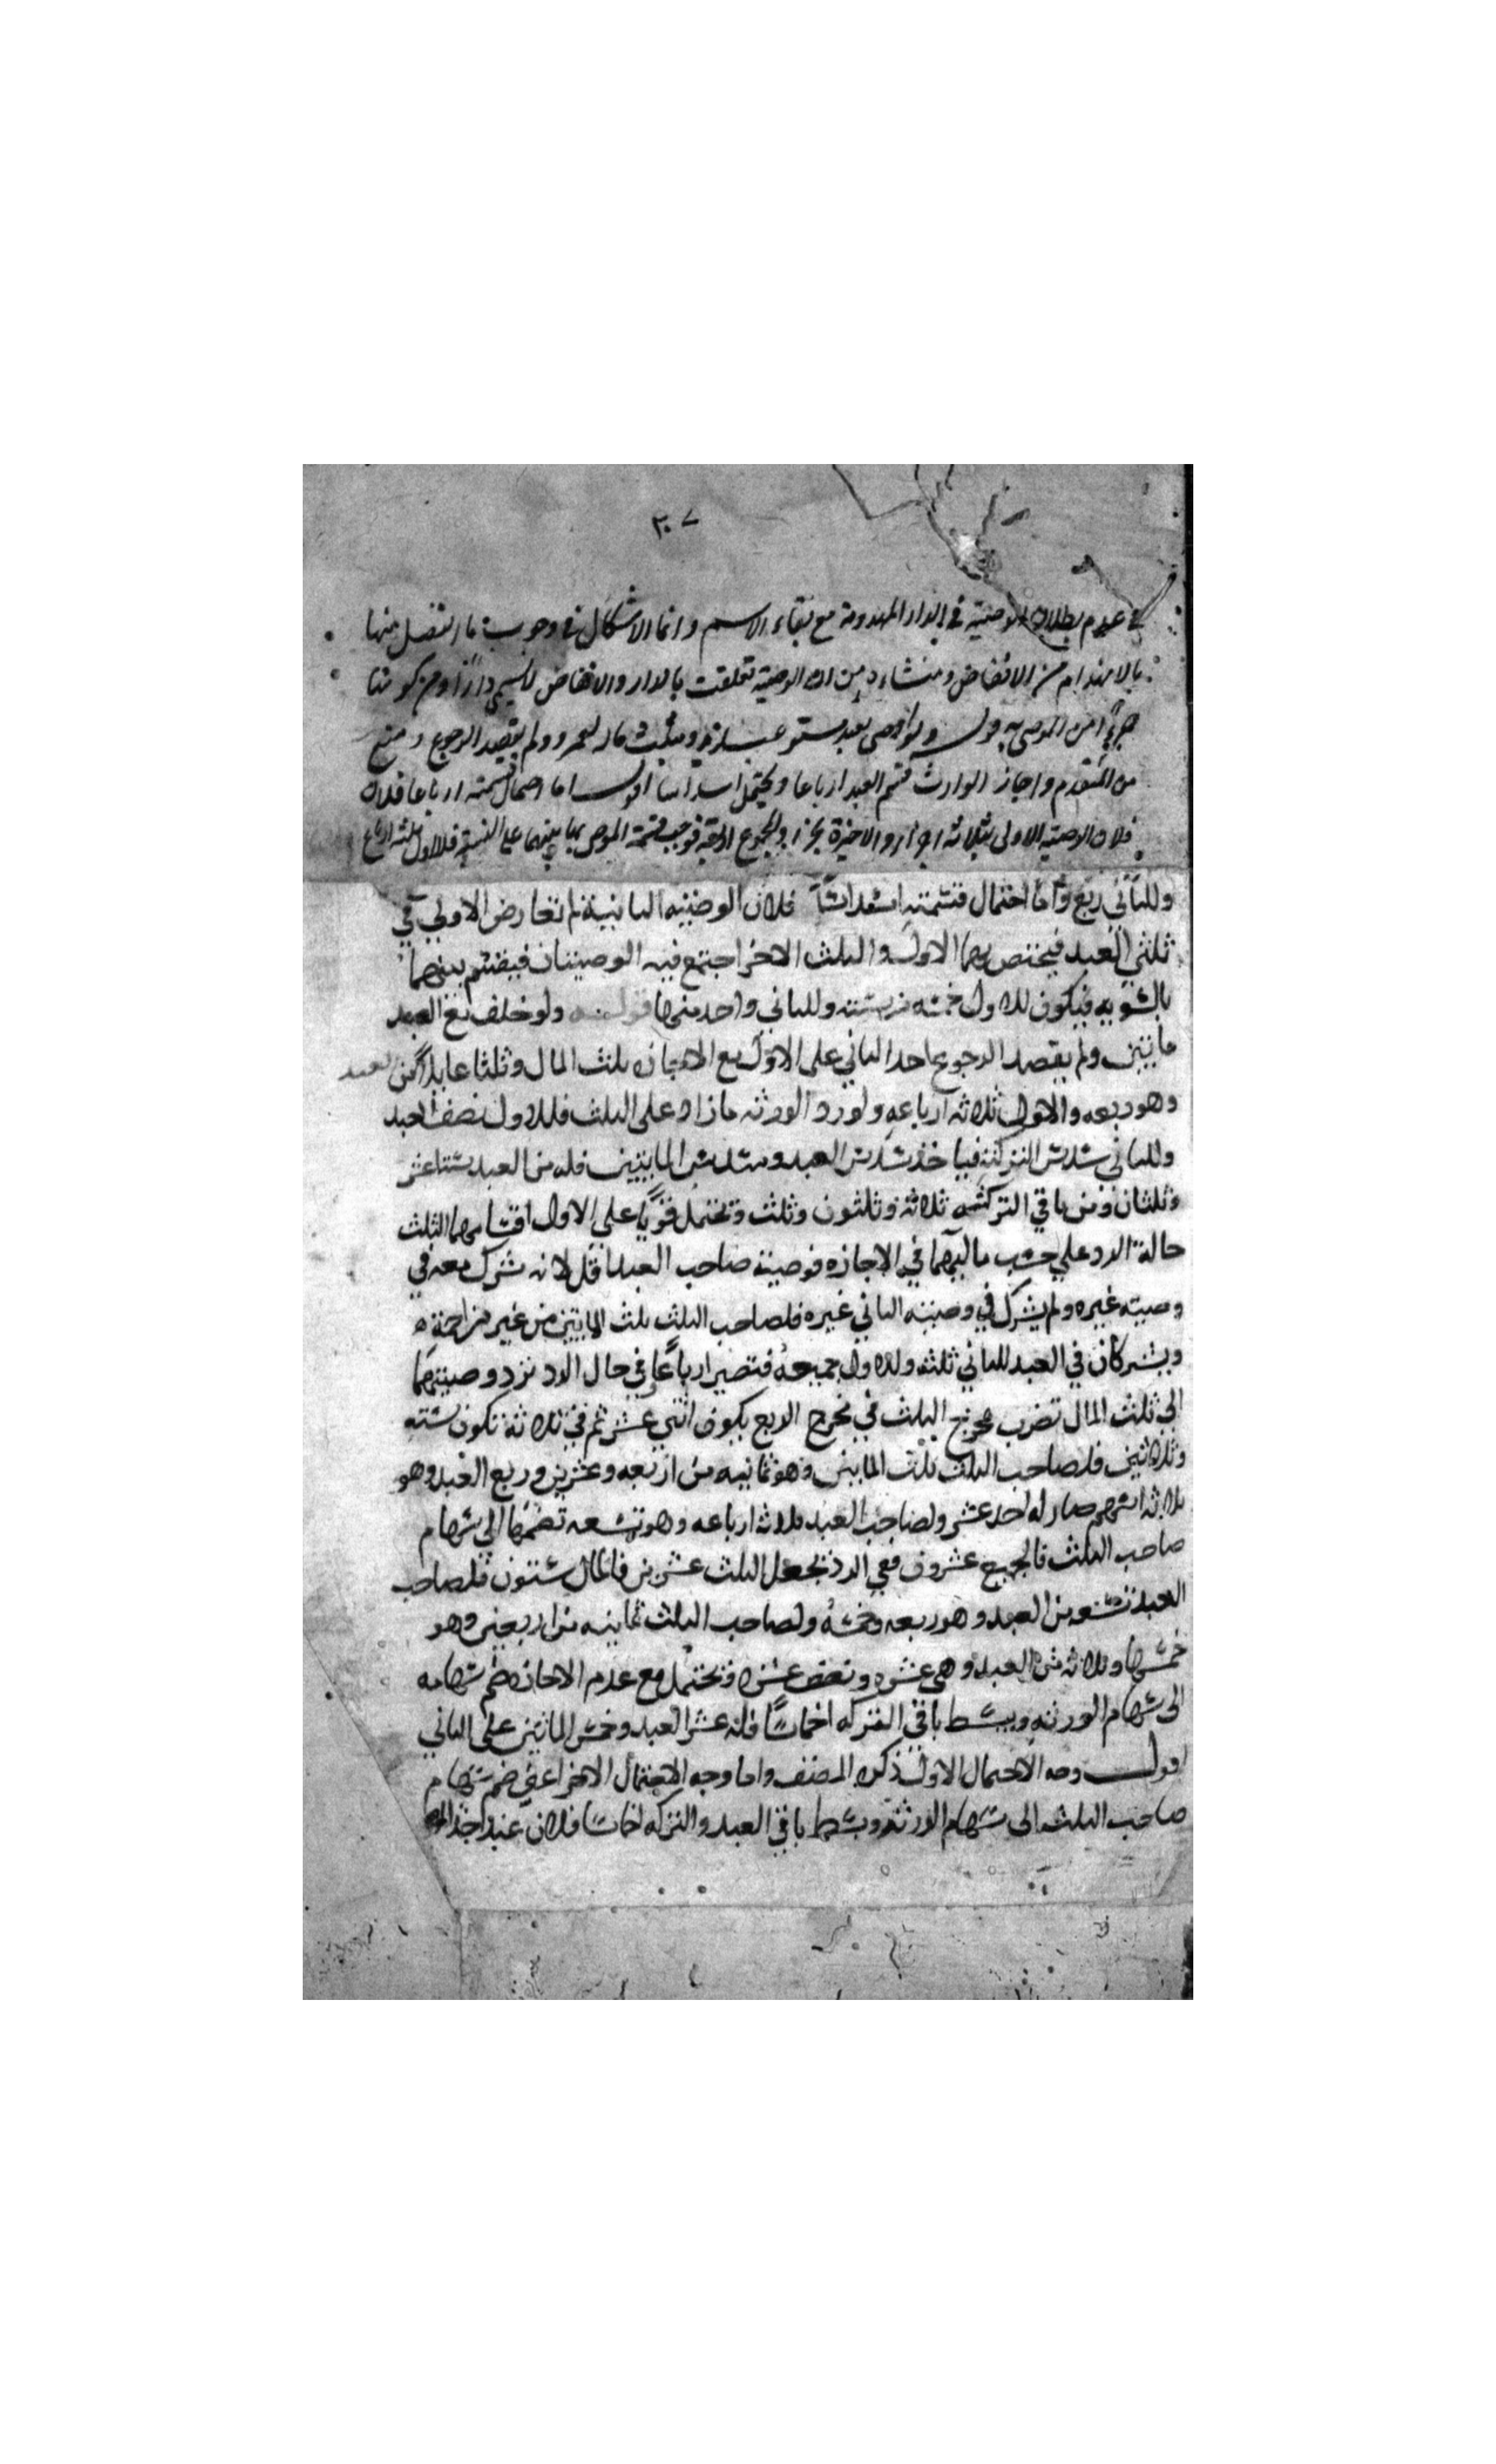 ٣٠٧
في عدم بطلان الوصية في الدار المهدومة مع بقاء الاسم وانما الاشكال في وجوب ما انفصل منها
بالانهدام من الانقاض ومنشاءه من ان الوصية تعلقت بالدار والانقاض لا يسمى دارا ومن كونها
جزءا من الموصى به قوله ولو اوصى بعبد لزيد وبثلث ماله لعمرو ولم يقصد الرجوع ومنع
من المتقدم واجاز الوارث قسم العبد ارباعا ويحتمل اسداسا اقول اما احتمال قسمته ارباعا فلان
فلان الوصية الاولى بثلاثة اجزاء والاخيرة بجزء والمجموع اربعة فوجب قسمة الموصى بها بينهما على النسبة فللاول ثلثة ارباع
وللثاني ربع واما احتمال قسمته اسداسا فلان الوصيه الثانية لم تعارض الاولى في
ثلثي العبد فيختص بهما الاول والثلث الاخر اجتمع فيه الوصيتان فيقتسم بينهما
بالسويه فيكون للاول خمسه من سته وللثاني واحد منها قوله ولو خلف مع العبد
مائتين ولم يقصد الرجوع بماحد الثاني على الاول مع الاجازه ثلث المال وثلثا عايدا من العبد
وهو ربعه والاول ثلاثه ارباعه ولو رد الورثه ما زاد على الثلث فللاول نصف العبد
وللثاني سدس التركة فياخذ سدس العبد وسدس المايتين فله من العبد ستة عشر
وثلثان ومن باقي التركه ثلاثة وثلثون وثلث ويحتمل قويا على الاول اقتسامهما الثلث
حالة الرد على حسب مالهما في الاجازه فوصية صاحب العبد اقل لانه شرك معه في
وصيته غيره ولم يشرك في وصيته الثاني غيره فلصاحب الثلث ثلث المايتين من غير مزاحمة
ويشتركان في العبد للثاني ثلثه وللاول جميعه فتصير ارباعا في حال الرد نرد وصيتهما
الى ثلث المال تضرب مخرج الثلث في مخرج الربع يكون اثني عشر ثم في ثلاثة تكون سته
وثلاثين فلصاحب الثلث ثلث المايتين وهو ثمانيه من اربعه وعشرين وربع العبد وهو
ثلاثه اسهم صار له احد عشر ولصاحب العبد ثلاثه ارباعه وهو تسعه تضمها الى سهام
صاحب الثلث فالجميع عشرون ففي الرد تجعل الثلث عشرين فالمال ستون فلصاحب
العبد تسعه من العبد وهو ربعه وخمسه ولصاحب الثلث ثمانيه من اربعين وهو
خمسها وثلاثه من العبد وهي عشره ونصف عشره ويحتمل مع عدم الاجازه ضم سهامه
الى سهام الورثه وبسط باقي التركه اخماسا فله عشر العبد وخمس المائتين على الثاني
اقول وجه الاحتمال الاول ذكره المصنف واما وجه الاحتمال الاخر اعني ضم سهام
صاحب الثلث الى سهام الورثه وبسط باقي العبد والتركه اخماسا فلان عند اخذ